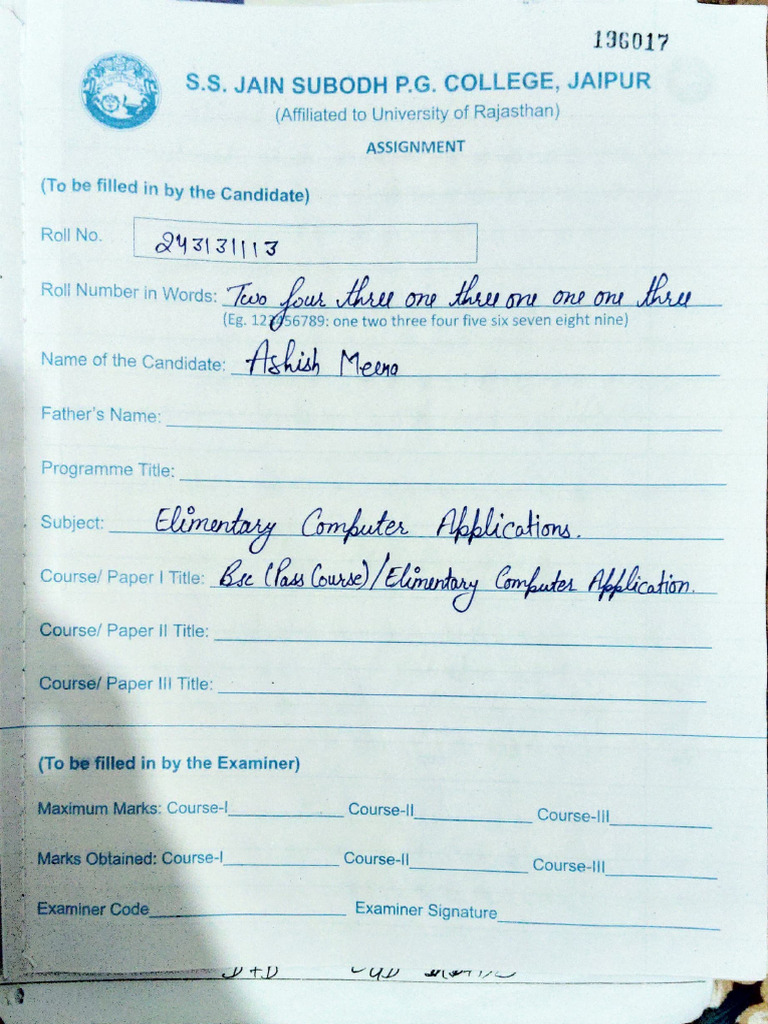 136017
S.S. JAIN SUBODH P.G. COLLEGE, JAIPUR
(Affiliated to University of Rajasthan)
ASSIGNMENT
(To be filled in by the Candidate)
Roll No. 243131113
Roll Number in Words: Two four three one three one one one three
(Eg. 123456789: one two three four five six seven eight nine)
Name of the Candidate: Ashish Meena
Father's Name:
Programme Title:
Subject: Elimentary Computer Applications.
Course/ Paper I Title: Bsc (Pass Course)/Elimentary Computer Application.
Course/ Paper II Title:
Course/ Paper III Title:
(To be filled in by the Examiner)
Maximum Marks: Course-I Course-II Course-III
Marks Obtained: Course-I Course-II Course-III
Examiner Code Examiner Signature